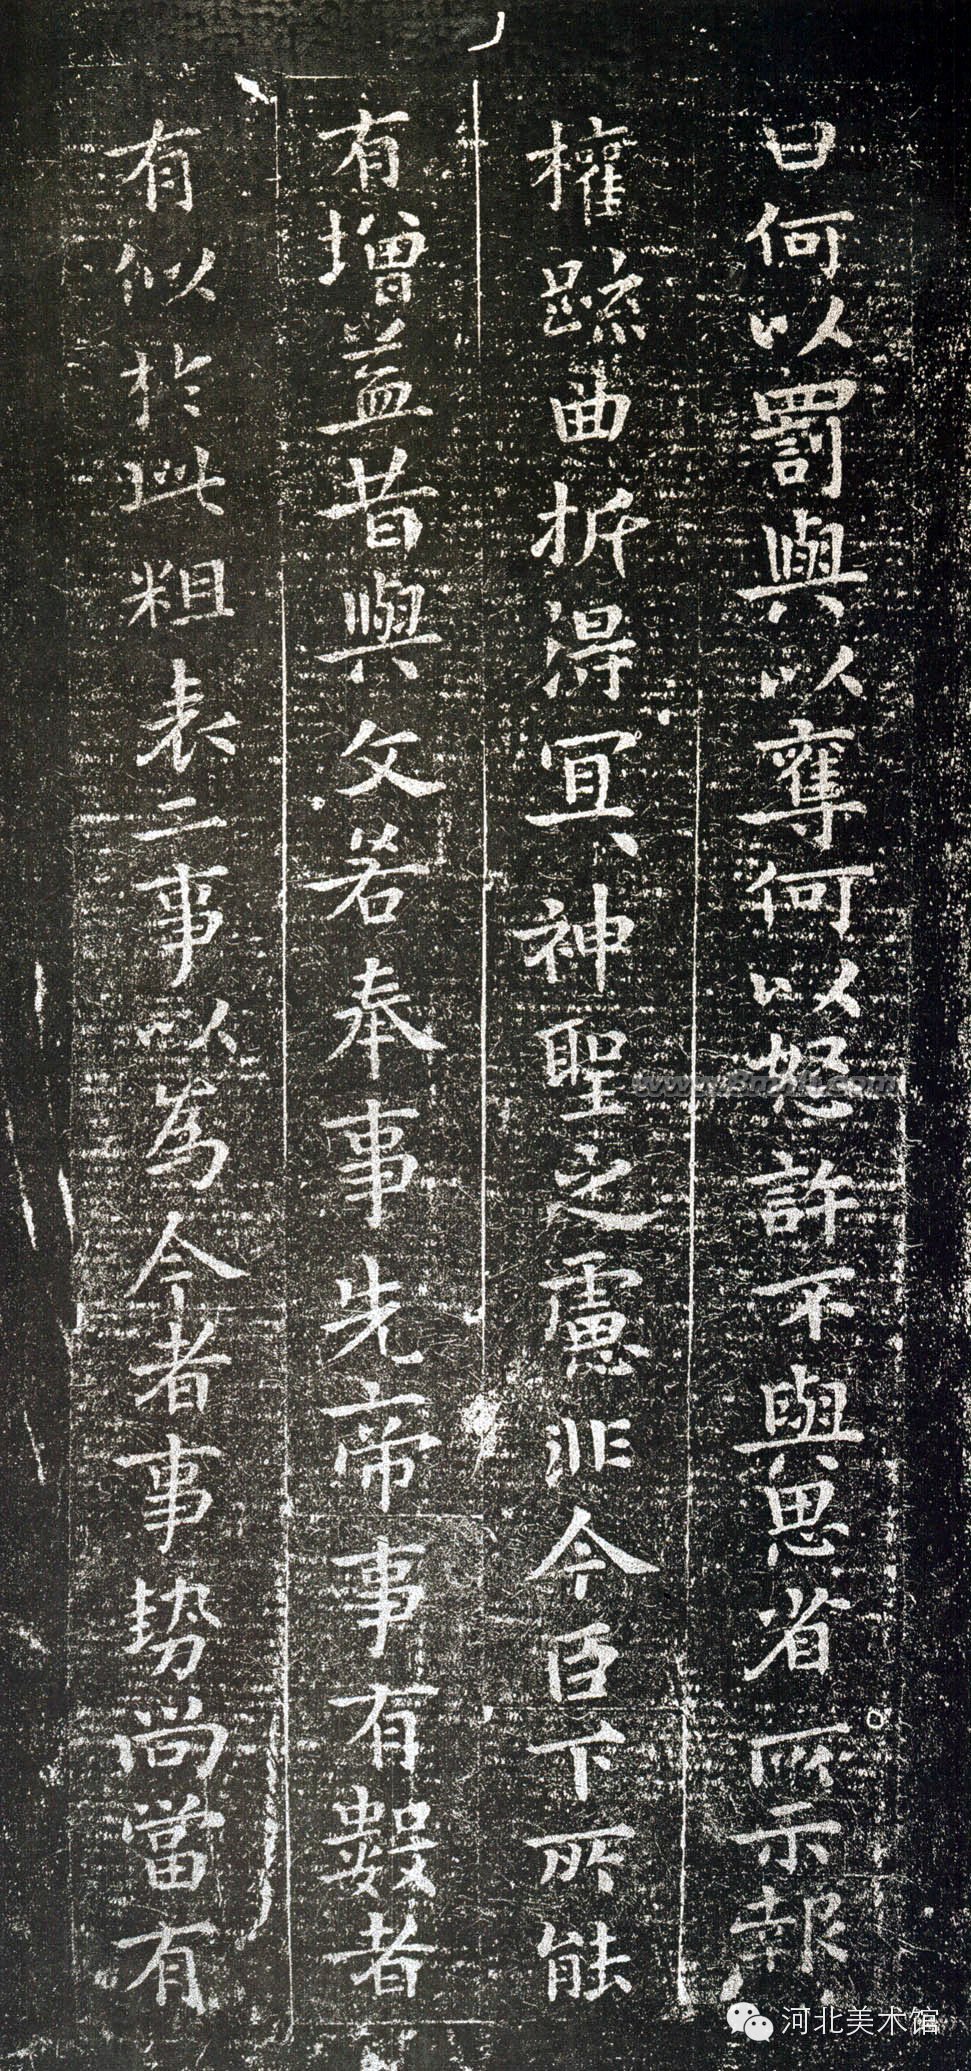 曰何以罰與以奪何以怒許不與思省所示報
權疏曲折得冝、神聖之慮非今臣下所能
有增益昔與文若奉事先帝事有數者
有似於此粗表二事以為今者事勢尚當有
河北美术馆